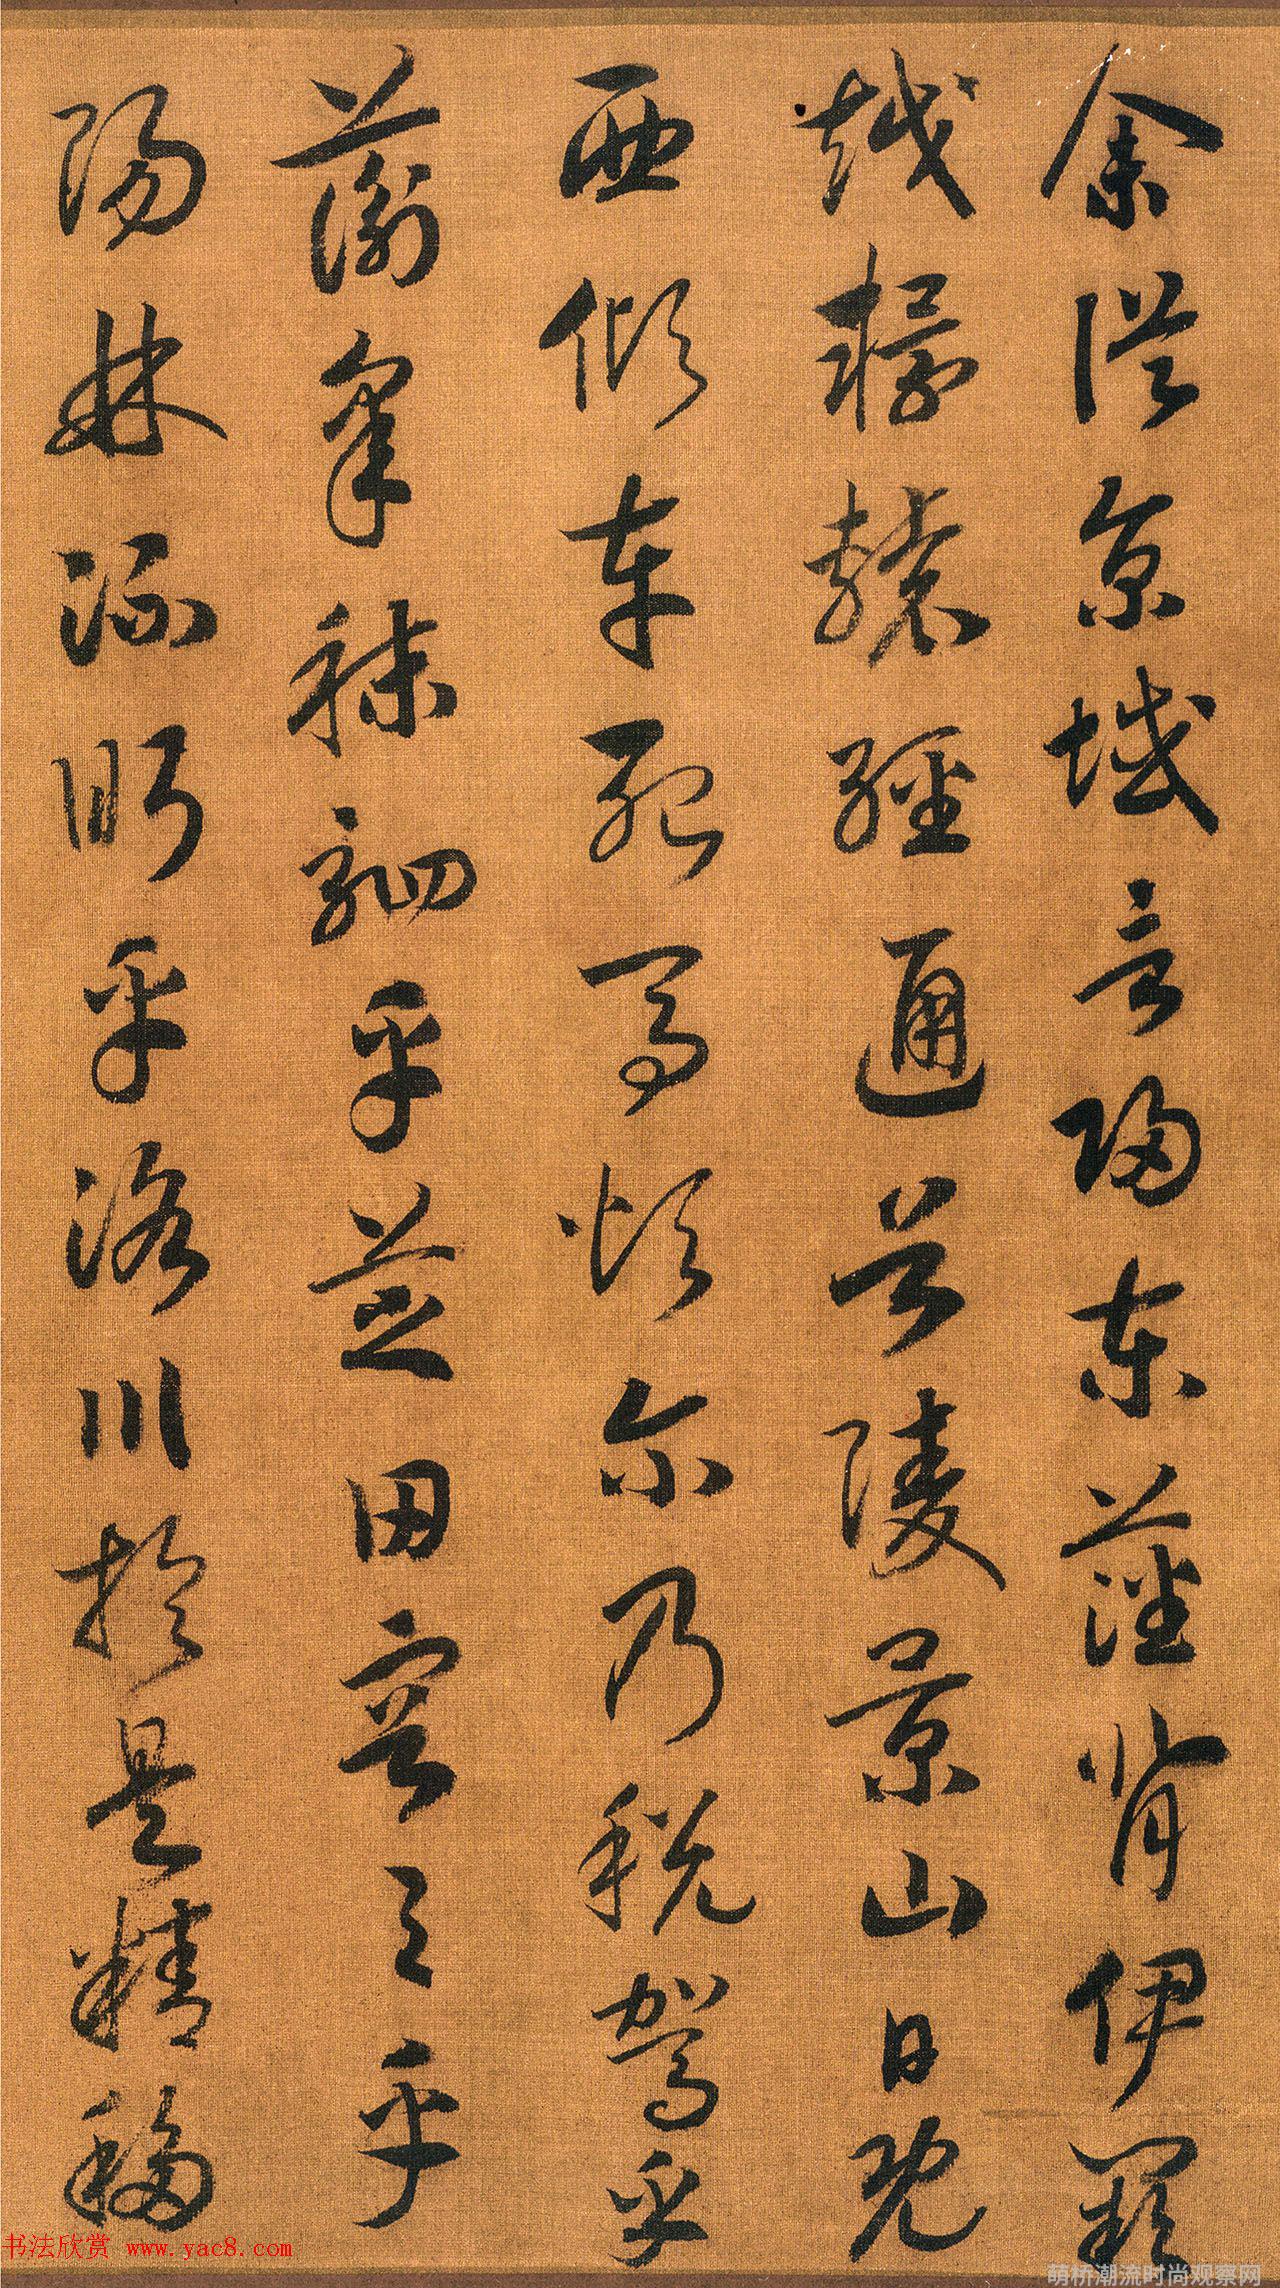 余從京域言歸東藩背伊闕
越轘轅經通谷陵景山日既
西傾車殆馬煩尔乃稅駕乎
蘅皋秣駟乎芝田容与乎
陽林流眄乎洛川於是精移
书法欣赏 www.yac8.com
萌桥潮流时尚观察网